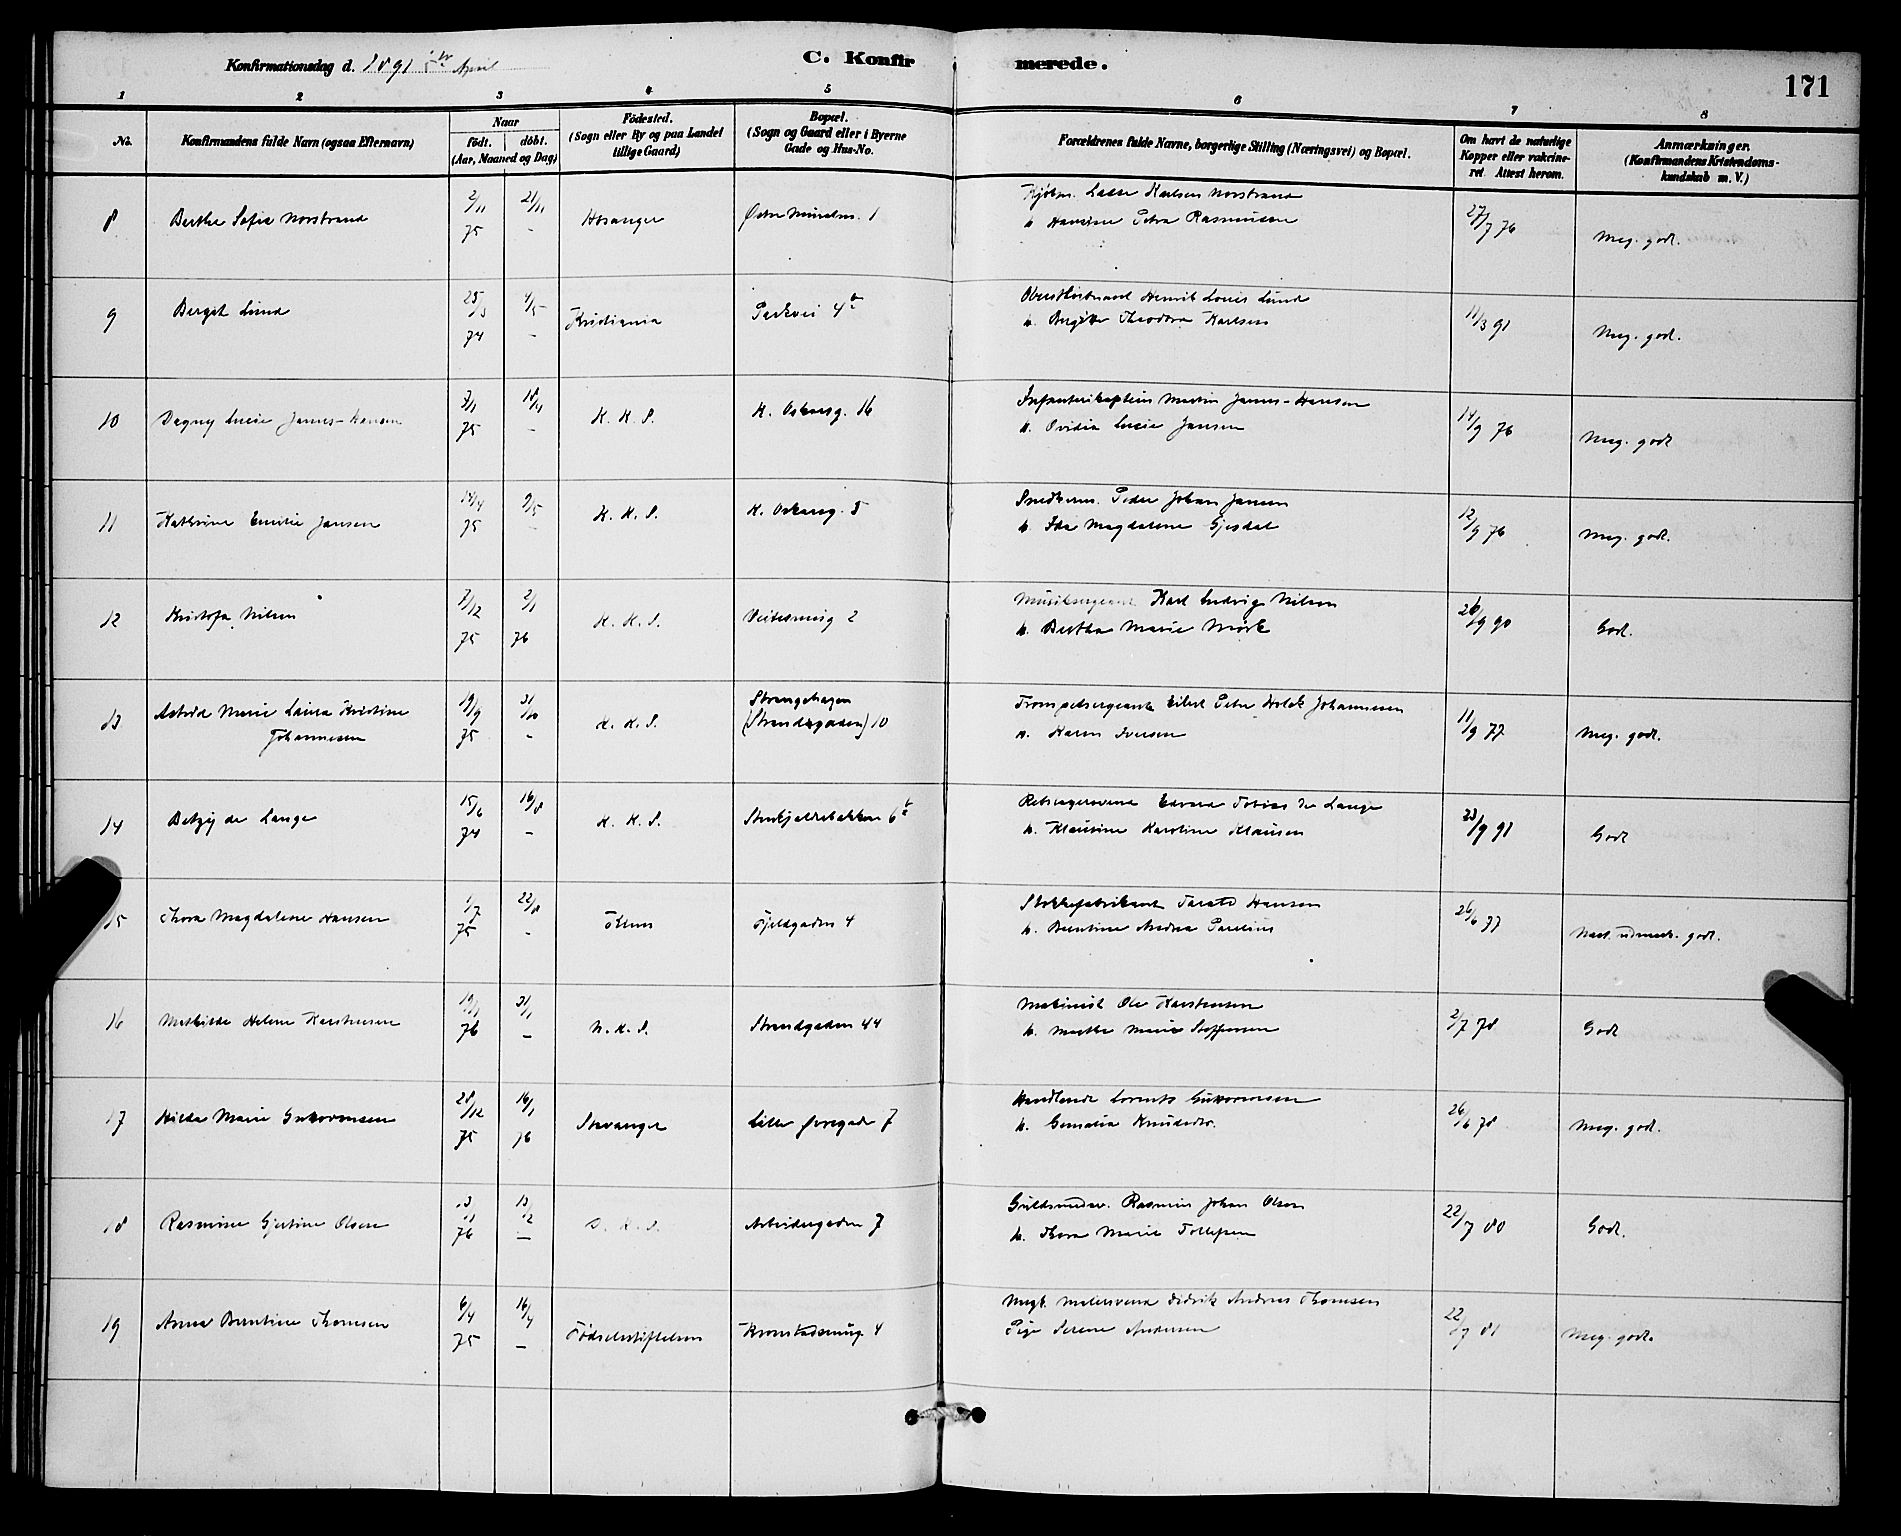 Konfirmationsdag d. 1891 5te April
C. Konfirmerede.
171
1 2 3 4 5 6 7 8
No.
Konfirmandens fulde Navn (ogsaa Efternavn)
Naar
födt. döbt.
(Aar, Maaned og Dag)
Födested.
(Sogn eller By og paa Landet
tillige Gaard)
Bopæl.
(Sogn og Gaard eller i Byerne
Gade og Hus-No.
Forældrenes fulde Navne, borgerlige Stilling (Næringsvei) og Bopæl.
Om havt de naturlige
Kopper eller vakcine-
ret. Attest herom.
Anmærkninger.
(Konfirmandens Kristendoms-
kundskab m. V.)
8 Berthe Sofie Norstrand 2/11 75 21/11 - Hosanger 1
Lasse Karlsen Norstrand
h. Hansine Petra Rasmussen
27/7 76 Meg. godt.
9 Bergit Lund 25/3 74 4/5 - Kristiania Parkvei 4b
Henrik Louis Lund
h. Birgitte Theodora Karlsen
11/3 91 Meg. godt.
10 Dagny Lucie James-Hansen 3/11 75 18/11 - K. K. S. K. Oskarsg. 16
Infanterikaptein Martin James-Hansen
h. Ovidia Lucie Jansen
14/9 76 Meg. godt
11 Kathrine Emilie Jansen 14/4 75 9/5 - K. K. S. K. Oskarsg. 5
Snedkerm. Peder Johan Jansen
h. Ida Magdalene Gjesdal
12/9 76 Meg. godt.
12 Kristofa Nilsen 7/12 75 2/1 76 K. K. S. 2
Musiksergeant Karl Ludvig Nilsen
h. Bertha Marie Mörk
26/9 90 Godt.
13 Astrid Marie Laura Kristine
Johannesen 19/9 75 31/10 - K. K. S. Strangehagen
(Strandgaden) 10
Trompetsergeant Eilert Peter Holck Johannesen
h. Karen Iversen
11/9 77 Meg. godt.
14 Betzy de Lange 15/6 74 16/8 - K. K. S. Stenkjelderbakken 6b
Edvard Tobias de Lange
h. Klausine Karoline Klausen
23/9 91 Godt
15 Thora Magdalene Hansen 1/7 75 22/8 - Fjeldgaden 4
Hansen
h. Berntine Andrea
26/6 77 Næst. udmerk. godt.
16 Mathilde Helene Karstensen 19/1 76 31/1 - N. K. S. Strandgaden 44
Maskinist Ole Karstensen
h. Marthe Marie
2/7 78 Godt
17 Hilda Marie Guttormsen 28/12 75 16/1 76 Stavanger Lille Övregade 7
Handlende Lorents Guttormsen
h. Knudsdtr.
26/6 78 Meg. godt.
18 Rasmine Gjertine Olsen 76 13/2 - D. K. S. Arbeidergaden 7
Guldsmedsv. Rasmus Johan Olsen
h. Thora Marie Tollefsen
22/7 80 Godt.
19 Anna Berntine Thomsen 6/4 75 16/4 - Födselsstiftelsen 4
Ungk. Malersvend Didrik Andreas Thomsen
Pige Serene Andersen
22/7 81 Meg. godt.